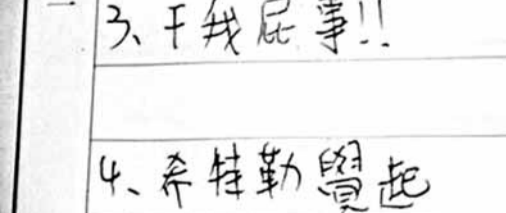 3、干我屁事!!
4、希特勒覺起